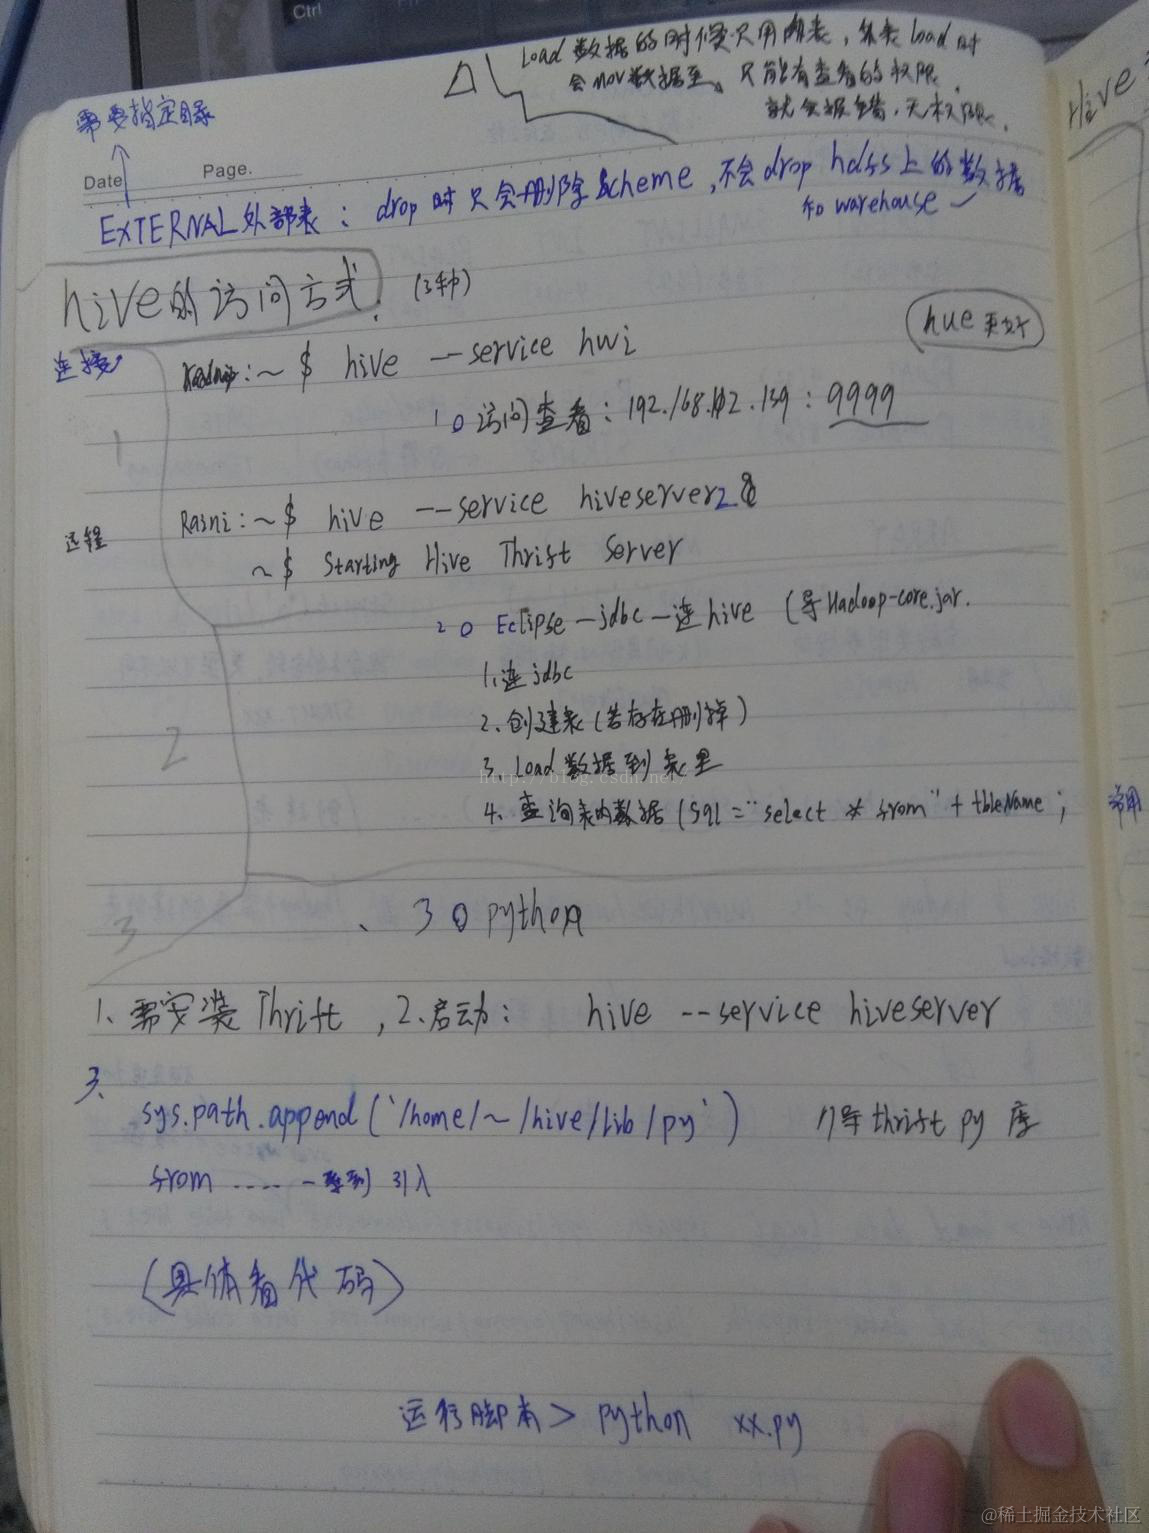 Ctrl
Load 数据的时候只用内表，外表 load 时
会mov数据至。只能有查看的权限.
就会报错，无权限。
需要指定目录
Date Page.
EXTERNAL外部表：drop时只会删除scheme，不会drop hdfs上的数据
和warehouse
hive的访问方式. (3种)
hue更好
连接
~$ hive —service hwi
1 O 访问查看：192.168.112.139：9999
1
远程
Raini:~$ hive --service hiveserver2 &
~$ Starting Hive Thrift Server
2 O Eclipse—jdbc—连hive (导Hadoop-core.jar.
1.连jdbc
2、创建表(若存在删掉)
3、Load数据到表里
http://blog.csdn.net/
4、查询表内数据(Sql="select * from"+tbleName;
2
常用
、3 O python
3
1、需安装Thrift，2.启动： hive --service hiveserver
3、
sys.path.append('/home/~/hive/lib/py') //导thrift py 库
from ..... 一系列 引入
(具体看代码)
运行脚本> python xx.py
Hive
@稀土掘金技术社区